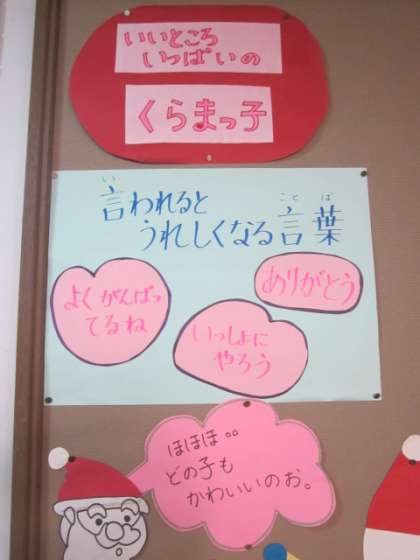 いいところ
いっぱいの
くらまっ子
い
言われると
こと ば
うれしくなる言葉
ありがとう
よくがんばっ
てるね
いっしょに
やろう
ほほほ。。
どの子も
かわいいのお。